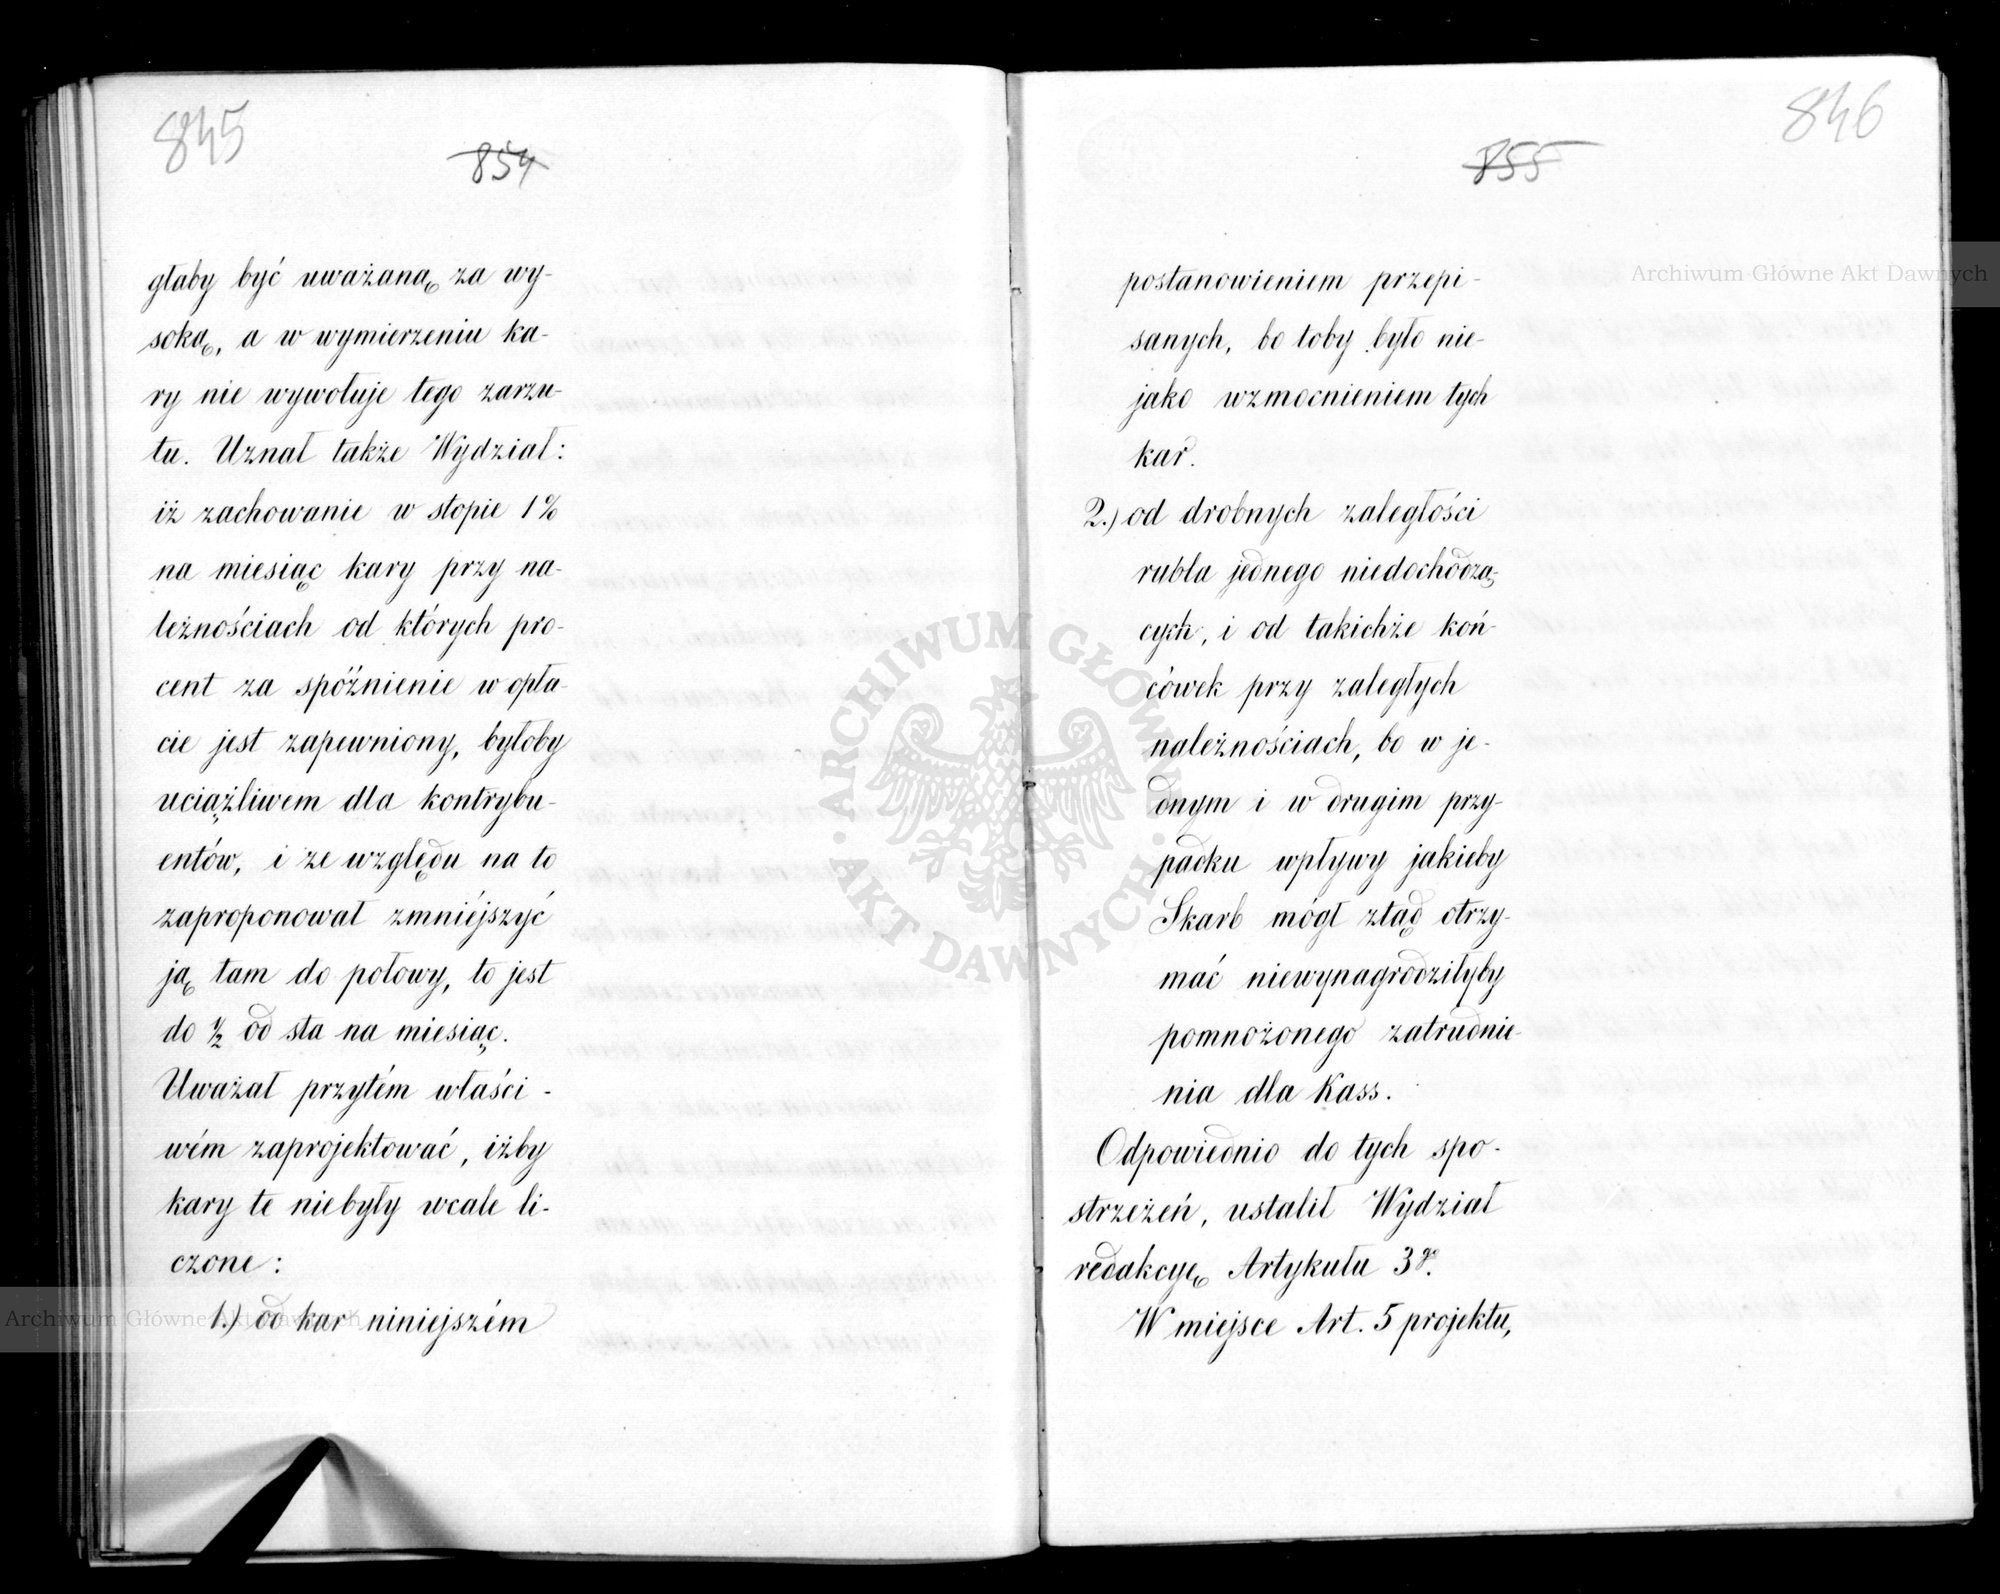 845
854
głaby być uważaną za wy-
soką, a w wymierzeniu ka-
ry nie wywołuje tego zarzu-
tu. Uznał także Wydział:
iż zachowanie w stopie 1%
na miesiąc kary przy na-
leżnościach od których pro-
cent za spóźnienie w opła-
cie jest zapewniony, byłoby
uciążliwem dla kontrybu-
entów, i ze względu na to
zaproponował zmniéjszyć
ją tam do połowy, to jest
do ½ od sta na miesiąc.
Uważał przytém właści-
wém zaprojektować, iżby
kary te niebyły wcale li-
czone:
1.) od kar niniejszém
846
855
postanowieniem przepi-
sanych, bo toby było nie-
jako wzmocnieniem tych
kar.
2.) od drobnych zaległości
rubla jednego niedochodzą-
cych, i od takichże koń-
cówek przy zaległych
należnościach, bo w je-
dnym i w drugim przy-
padku wpływy jakieby
Skarb mógł ztąd otrzy-
mać niewynagrodziłyby
pomnożonego zatrudnie-
nia dla Kass.
Odpowiednio do tych spo-
strzeżeń, ustalił Wydział
redakcyę Artykułu 3go.
W miejsce Art. 5 projektu,
Archiwum Główne Akt Dawnych
Archiwum Główne Akt Dawnych
ARCHIWUM GŁÓWNE · AKT DAWNYCH ·